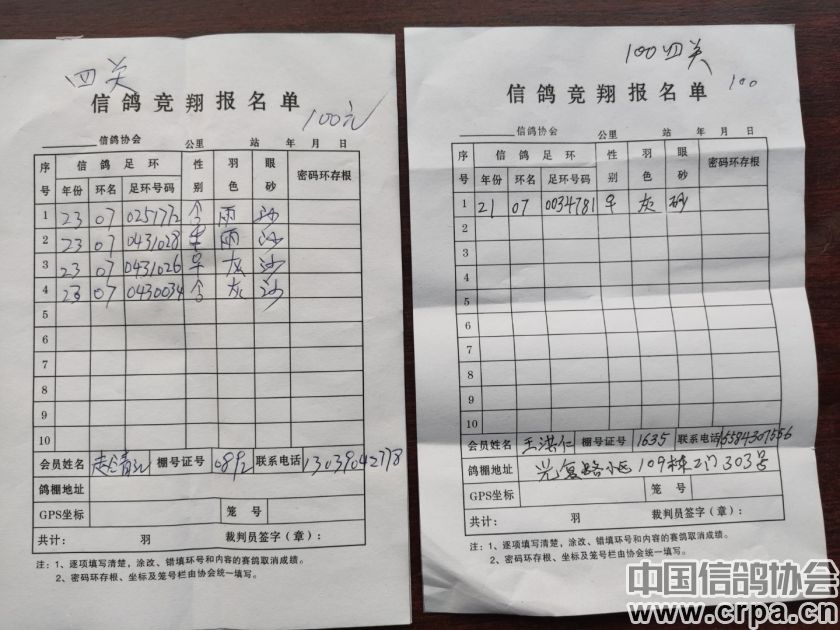 四关
信鸽竞翔报名单
100元
信鸽协会 公里 站 年 月 日
序号 信鸽足环 性别 羽色 眼砂 密码环存根
年份 环名 足环号码
1 23 07 雨 沙
2 23 07 0431028 雨 沙
3 23 07 0431026 灰 沙
4 23 07 0430034 灰 沙
5
6
7
8
9
10
会员姓名 棚号证号 0892 联系电话 13039042778
鸽棚地址
GPS坐标 笼号
共计: 羽 裁判员签字(章):
注:1、逐项填写清楚,涂改、错填环号和内容的赛鸽取消成绩。
2、密码环存根、坐标及笼号栏由协会统一填写。
100四关
信鸽竞翔报名单 100
信鸽协会 公里 站 年 月 日
序号 信鸽足环 性别 羽色 眼砂 密码环存根
年份 环名 足环号码
1 21 07 0034781 灰 砂
2
3
4
5
6
7
8
9
10
会员姓名 王洪仁 棚号证号 1635 联系电话 15584307556
鸽棚地址 光复路小区109栋2门303号
GPS坐标 笼号
共计: 羽 裁判员签字(章):
注:1、逐项填写清楚,涂改、错填环号和内容的赛鸽取消成绩。
2、密码环存根、坐标及笼号栏由协会统一填写。
中国信鸽协会
www.crpa.cn